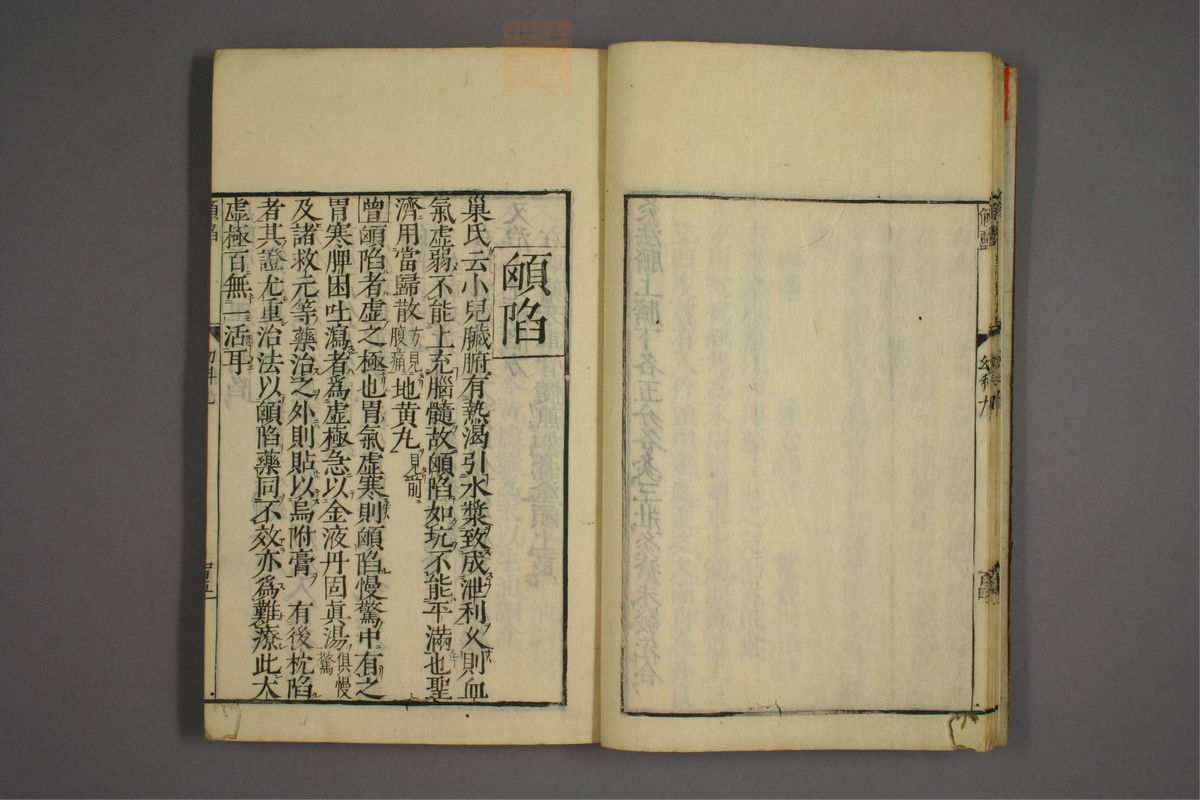 幼科 九
顖陷
巢氏云小兒臟腑有熱渴引水漿致成泄利久則血
氣虛弱不能上充腦髓故顖陷如坑不能平滿也聖
濟用當歸散方見腹痛地黄丸見前
曾顖陷者虛之極也胃氣虛寒則顖陷慢驚中有之
胃寒脾困吐瀉者爲虛極急以金液丹固眞湯俱慢驚
及諸救元等藥治之外則貼以烏附膏 有後枕陷
者其證尤重治法以顖陷藥同不效亦爲難療此大
虛極百無一活耳
顖陷